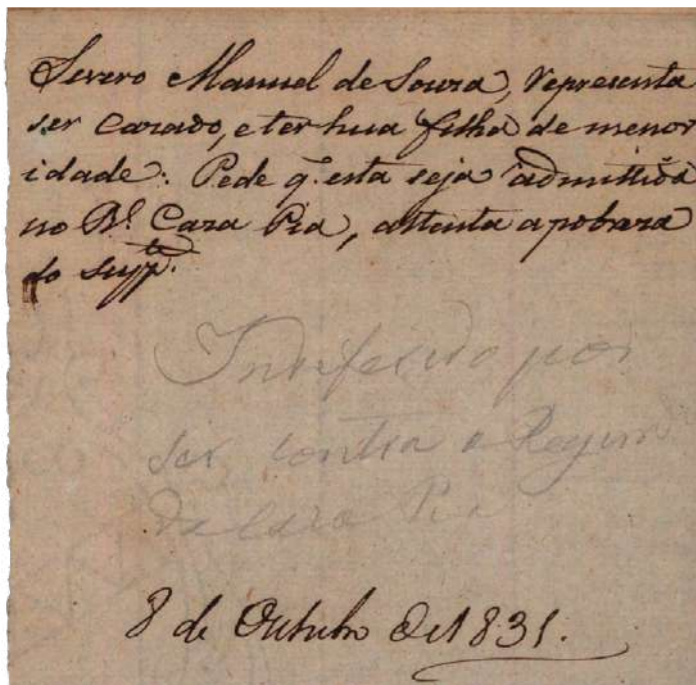 Severo Manuel de Souza, representa
ser cazado, e ter hua filha de menor
idade: Pede q. esta seja admittida
na Rl. Caza Pia, attenta a pobreza
do suppte.
Indeferido por
ser contra o Regim
da Caza Pia
8 de Outubro de 1831.